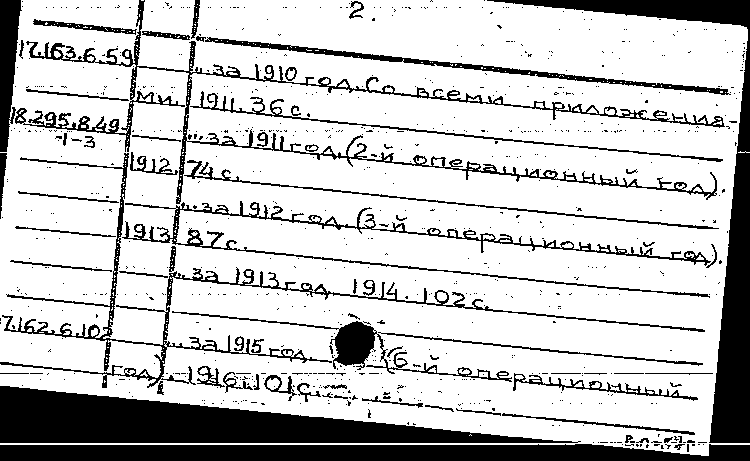 2.
17.163.6.59
...за 1910 год. Со всеми приложения-
ми. 1911. 36 с.
18.295.8.49
-1-3
...за 1911 год. (2-й операционный год).
1912. 74 с.
...за 1912 год. (3-й операционный год).
1913 87 с.
...за 1913 год 1914. 102 с.
17.162.6.102
...за 1915 год. (6-й операционный
год). 1916. 101 с.